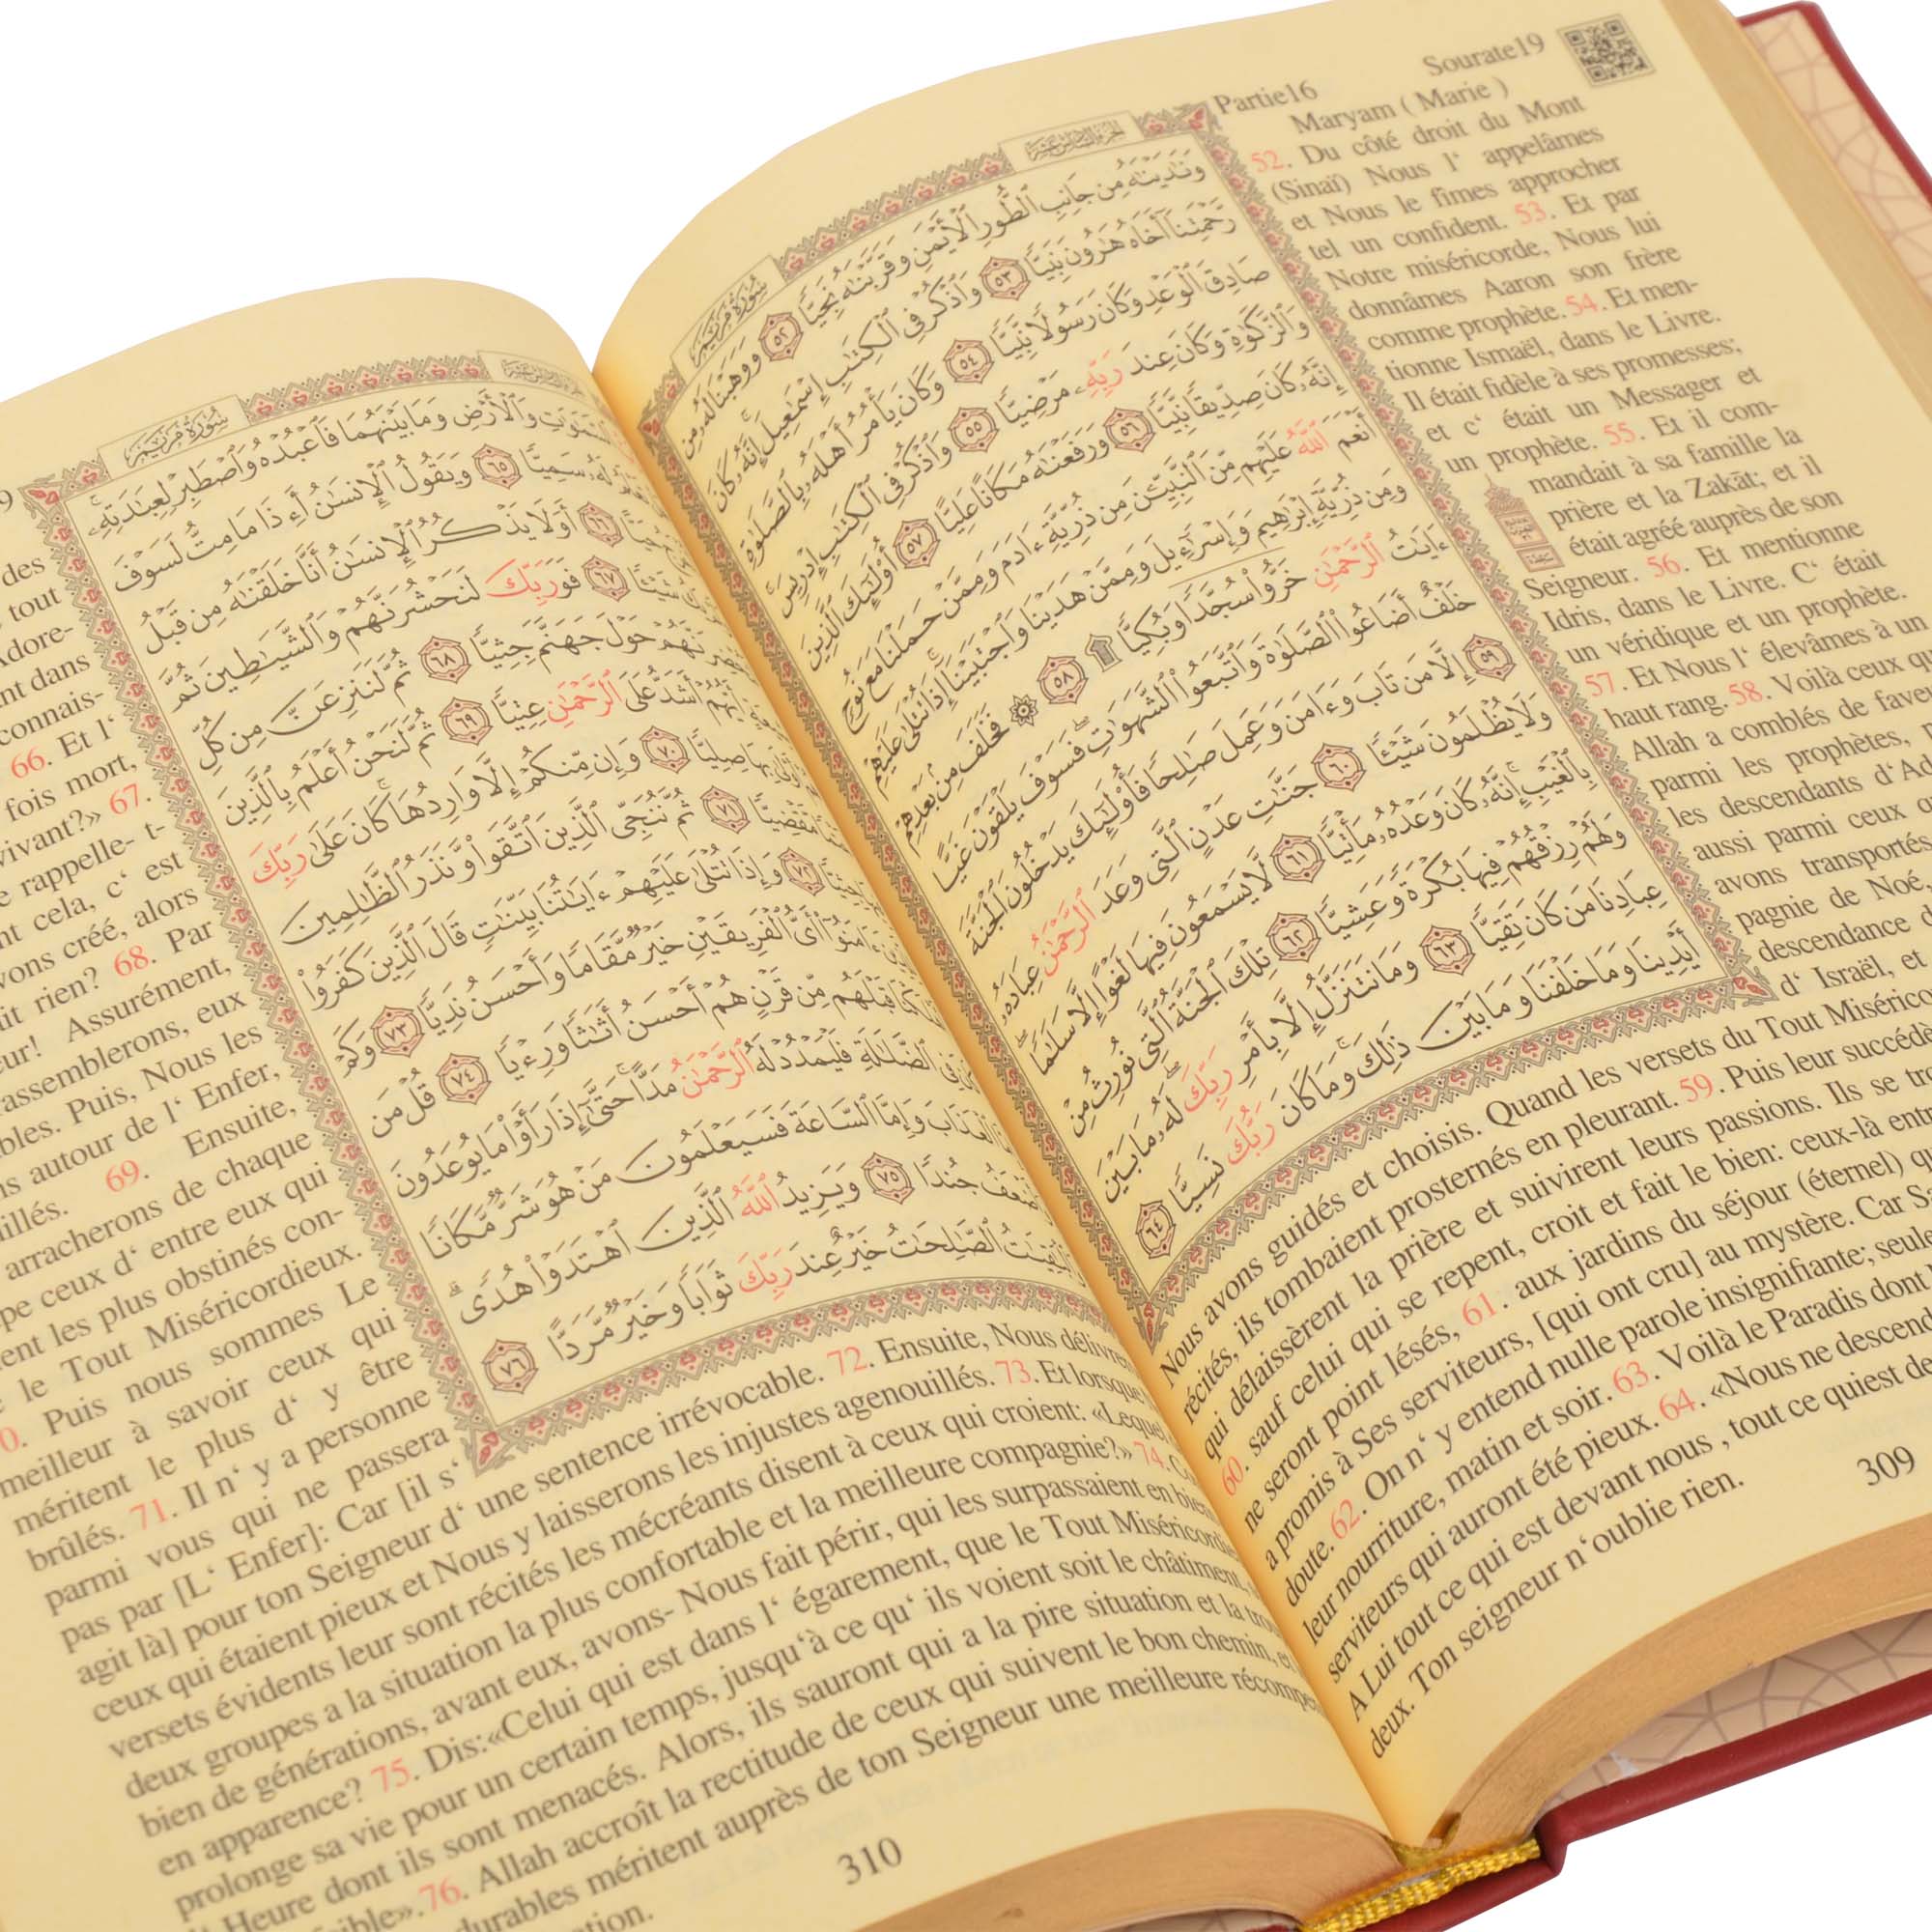 Partie16
Sourate19
Maryam ( Marie )
52. Du côté droit du Mont
(Sinaï) Nous l‘ appelâmes
et Nous le fîmes approcher
tel un confident. 53. Et par
Notre miséricorde, Nous lui
donnâmes Aaron son frère
comme prophète. 54. Et men-
tionne Ismaël, dans le Livre.
Il était fidèle à ses promesses;
et c‘ était un Messager et
un prophète. 55. Et il com-
mandait à sa famille la
prière et la Zakāt; et il
était agréé auprès de son
Seigneur. 56. Et mentionne
Idris, dans le Livre. C‘ était
un véridique et un prophète.
57. Et Nous l‘ élevâmes à un
haut rang. 58. Voilà ceux
Allah a comblés de
parmi les prophètes,
les descendants
aussi parmi ceux
avons transportés
pagnie de Noé,
descendance
d‘ Israël, et
Nous avons guidés et choisis. Quand les versets du Tout
récités, ils tombaient prosternés en pleurant. 59. Puis leur
qui délaissèrent la prière et suivirent leurs passions. Ils se
60. sauf celui qui se repent, croit et fait le bien: ceux-là
ne seront point lésés, 61. aux jardins du séjour (éternel)
a promis à Ses serviteurs, [qui ont cru] au mystère. Car
doute. 62. On n‘ y entend nulle parole insignifiante;
leur nourriture, matin et soir. 63. Voilà le Paradis dont
serviteurs qui auront été pieux. 64. «Nous ne
A Lui tout ce qui est devant nous , tout ce quiest
deux. Ton seigneur n‘oublie rien.
309
سُورَةُ مَرْيَمَ
الجزء السادس عشر
وَنَٰدَيْنَٰهُ مِن جَانِبِ ٱلطُّورِ ٱلْأَيْمَنِ وَقَرَّبْنَٰهُ نَجِيًّا ٥٢ وَوَهَبْنَا لَهُۥ مِن
رَّحْمَتِنَآ أَخَاهُ هَٰرُونَ نَبِيًّا ٥٣ وَٱذْكُرْ فِى ٱلْكِتَٰبِ إِسْمَٰعِيلَ ۚ إِنَّهُۥ كَانَ
صَادِقَ ٱلْوَعْدِ وَكَانَ رَسُولًا نَّبِيًّا ٥٤ وَكَانَ يَأْمُرُ أَهْلَهُۥ بِٱلصَّلَوٰةِ
وَٱلزَّكَوٰةِ وَكَانَ عِندَ رَبِّهِۦ مَرْضِيًّا ٥٥ وَٱذْكُرْ فِى ٱلْكِتَٰبِ إِدْرِيسَ ۚ
إِنَّهُۥ كَانَ صِدِّيقًا نَّبِيًّا ٥٦ وَرَفَعْنَٰهُ مَكَانًا عَلِيًّا ٥٧ أُوْلَٰٓئِكَ ٱلَّذِينَ
أَنْعَمَ ٱللَّهُ عَلَيْهِم مِّنَ ٱلنَّبِيِّـۧنَ مِن ذُرِّيَّةِ ءَادَمَ وَمِمَّنْ حَمَلْنَا مَعَ نُوحٍ
وَمِن ذُرِّيَّةِ إِبْرَٰهِيمَ وَإِسْرَٰٓءِيلَ وَمِمَّنْ هَدَيْنَا وَٱجْتَبَيْنَآ ۚ إِذَا تُتْلَىٰ عَلَيْهِمْ
ءَايَٰتُ ٱلرَّحْمَٰنِ خَرُّواْ سُجَّدًا وَبُكِيًّا ۩ ٥٨ ۞ فَخَلَفَ مِنۢ بَعْدِهِمْ
خَلْفٌ أَضَاعُواْ ٱلصَّلَوٰةَ وَٱتَّبَعُواْ ٱلشَّهَوَٰتِ ۖ فَسَوْفَ يَلْقَوْنَ غَيًّا
٥٩ إِلَّا مَن تَابَ وَءَامَنَ وَعَمِلَ صَٰلِحًا فَأُوْلَٰٓئِكَ يَدْخُلُونَ ٱلْجَنَّةَ
وَلَا يُظْلَمُونَ شَيْـًٔا ٦٠ جَنَّٰتِ عَدْنٍ ٱلَّتِى وَعَدَ ٱلرَّحْمَٰنُ عِبَادَهُۥ
بِٱلْغَيْبِ ۚ إِنَّهُۥ كَانَ وَعْدُهُۥ مَأْتِيًّا ٦١ لَّا يَسْمَعُونَ فِيهَا لَغْوًا إِلَّا سَلَٰمًا ۖ
وَلَهُمْ رِزْقُهُمْ فِيهَا بُكْرَةً وَعَشِيًّا ٦٢ تِلْكَ ٱلْجَنَّةُ ٱلَّتِى نُورِثُ مِنْ
عِبَادِنَا مَن كَانَ تَقِيًّا ٦٣ وَمَا نَتَنَزَّلُ إِلَّا بِأَمْرِ رَبِّكَ ۖ لَهُۥ مَا بَيْنَ
أَيْدِينَا وَمَا خَلْفَنَا وَمَا بَيْنَ ذَٰلِكَ ۚ وَمَا كَانَ رَبُّكَ نَسِيًّا ٦٤
سُورَةُ مَرْيَمَ
وَٱلْأَرْضِ وَمَا بَيْنَهُمَا فَٱعْبُدْهُ وَٱصْطَبِرْ لِعِبَٰدَتِهِۦ ۚ
لَهُۥ سَمِيًّا ٦٥ وَيَقُولُ ٱلْإِنسَٰنُ أَءِذَا مَا مِتُّ لَسَوْفَ
حَيًّا ٦٦ أَوَلَا يَذْكُرُ ٱلْإِنسَٰنُ أَنَّا خَلَقْنَٰهُ مِن قَبْلُ
شَيْـًٔا ٦٧ فَوَرَبِّكَ لَنَحْشُرَنَّهُمْ وَٱلشَّيَٰطِينَ ثُمَّ
حَوْلَ جَهَنَّمَ جِثِيًّا ٦٨ ثُمَّ لَنَنزِعَنَّ مِن كُلِّ
أَيُّهُمْ أَشَدُّ عَلَى ٱلرَّحْمَٰنِ عِتِيًّا ٦٩ ثُمَّ لَنَحْنُ أَعْلَمُ بِٱلَّذِينَ
بِهَا صِلِيًّا ٧٠ وَإِن مِّنكُمْ إِلَّا وَارِدُهَا ۚ كَانَ عَلَىٰ رَبِّكَ
مَّقْضِيًّا ٧١ ثُمَّ نُنَجِّى ٱلَّذِينَ ٱتَّقَواْ وَّنَذَرُ ٱلظَّٰلِمِينَ
جِثِيًّا ٧٢ وَإِذَا تُتْلَىٰ عَلَيْهِمْ ءَايَٰتُنَا بَيِّنَٰتٍ قَالَ ٱلَّذِينَ كَفَرُواْ
ءَامَنُوٓاْ أَىُّ ٱلْفَرِيقَيْنِ خَيْرٌ مَّقَامًا وَأَحْسَنُ نَدِيًّا ٧٣ وَكَمْ
قَبْلَهُم مِّن قَرْنٍ هُمْ أَحْسَنُ أَثَٰثًا وَرِءْيًا ٧٤ قُلْ مَن
فِى ٱلضَّلَٰلَةِ فَلْيَمْدُدْ لَهُ ٱلرَّحْمَٰنُ مَدًّا ۚ حَتَّىٰٓ إِذَا رَأَوْاْ مَا يُوعَدُونَ
ٱلْعَذَابَ وَإِمَّا ٱلسَّاعَةَ فَسَيَعْلَمُونَ مَنْ هُوَ شَرٌّ مَّكَانًا
جُندًا ٧٥ وَيَزِيدُ ٱللَّهُ ٱلَّذِينَ ٱهْتَدَوْاْ هُدًى ۗ
ٱلصَّٰلِحَٰتُ خَيْرٌ عِندَ رَبِّكَ ثَوَابًا وَخَيْرٌ مَّرَدًّا ٧٦
des
tout
Adore-
dans
connais-
66. Et l‘
fois mort,
vivant?» 67.
rappelle- t-
cela, c‘ est
créé, alors
rien? 68. Par
Assurément,
eux
Puis, Nous les
autour de l‘ Enfer,
69. Ensuite,
arracherons de chaque
ceux d‘ entre eux qui
les plus obstinés con-
le Tout Miséricordieux.
Puis nous sommes Le
meilleur à savoir ceux qui
méritent le plus d‘ y être
brûlés. 71. Il n‘ y a personne
parmi vous qui ne passera
pas par [L‘ Enfer]: Car [il s‘
agit là] pour ton Seigneur d‘ une sentence irrévocable. 72. Ensuite, Nous
ceux qui étaient pieux et Nous y laisserons les injustes agenouillés. 73. Et lorsque
versets évidents leur sont récités les mécréants disent à ceux qui croient:
deux groupes a la situation la plus confortable et la meilleure compagnie?» 74.
bien de générations, avant eux, avons- Nous fait périr, qui les surpassaient en
en apparence? 75. Dis:«Celui qui est dans l‘ égarement, que le Tout
prolonge sa vie pour un certain temps, jusqu‘à ce qu‘ ils voient soit le châtiment,
Heure dont ils sont menacés. Alors, ils sauront qui a la pire situation et la
76. Allah accroît la rectitude de ceux qui suivent le bon chemin,
durables méritent auprès de ton Seigneur une meilleure
310